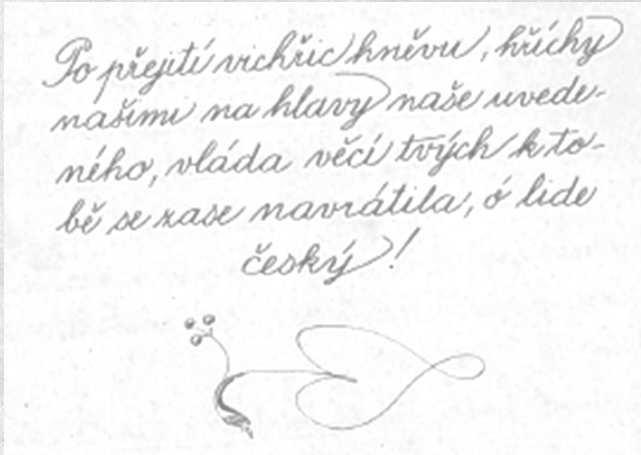 Po přejití vichřic hněvu, hříchy
našimi na hlavy naše uvede-
ného, vláda věcí tvých k to-
bě se zase navrátila, ó lide
český!